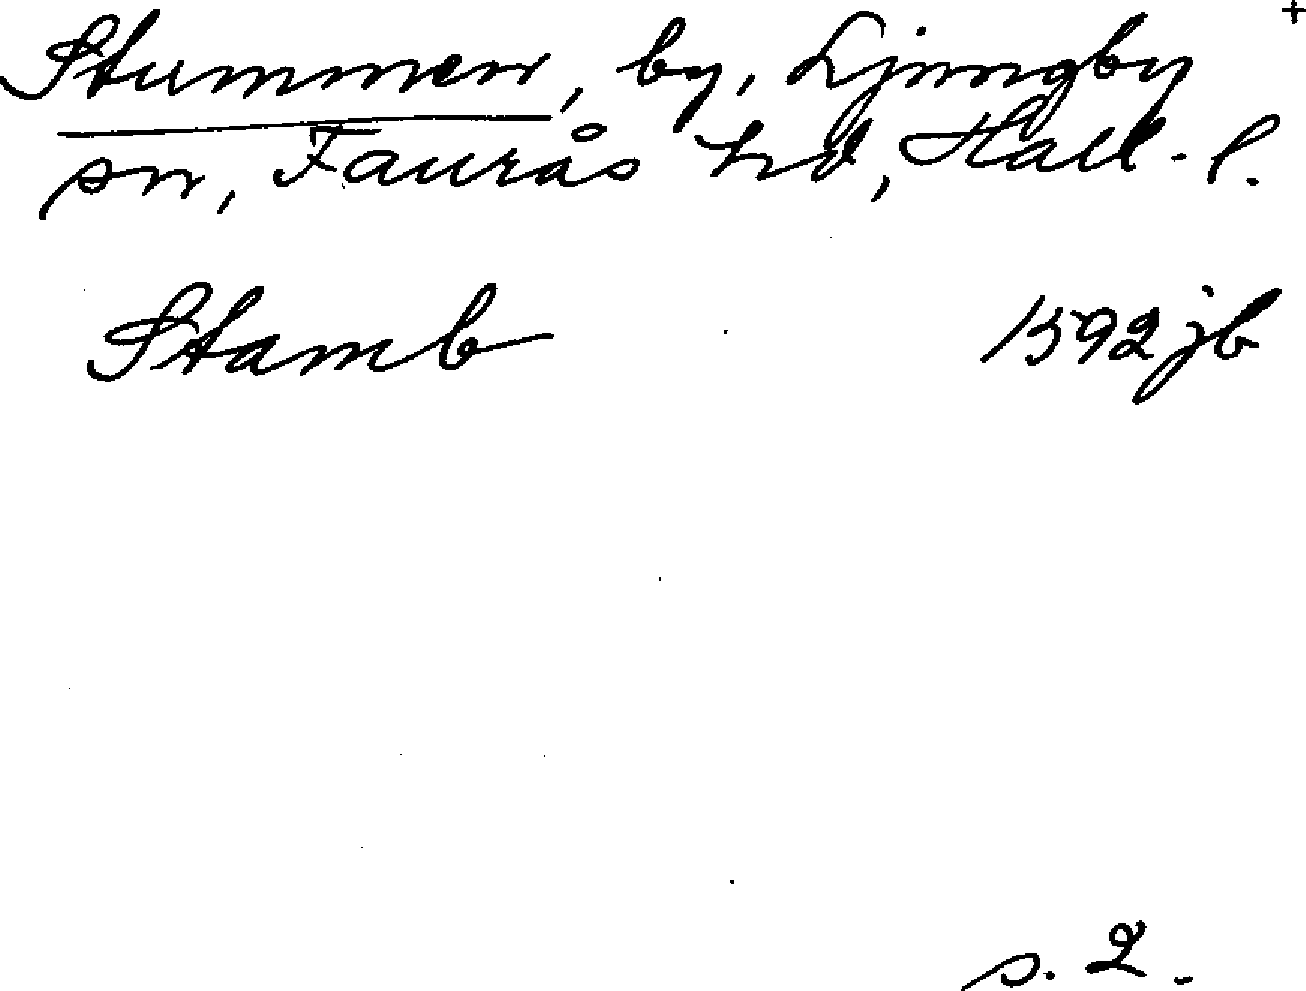 +
Stummen, by, Ljungby
sn, Faurås hd, Hall. l.
Stamb 1592 jb
s. 2.